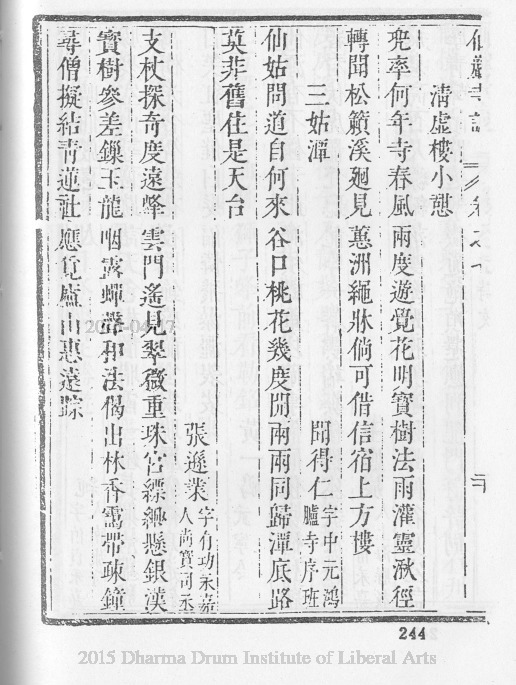 仙巖
清虛樓小憩
兜率何年寺春風兩度遊覺花明寶樹法雨灌靈湫徑
轉聞松籟溪廻見蕙洲繩牀倘可借信宿上方樓
三姑潭 聞得仁 字中元鴻
臚寺序班
仙姑問道自何來谷口桃花幾度開兩兩同歸潭底路
莫非舊住是天台
張遜業 字有功永嘉
人尚寶司丞
支杖探奇度遠峰雲門遙見翠微重珠宮縹緲懸銀漢
寶樹參差鏁玉龍咽露蟬聲和法偈出林香靄帶疎鐘
尋僧擬結靑蓮社應覓廬山惠遠踪
244
2015 Dharma Drum Institute of Liberal Arts